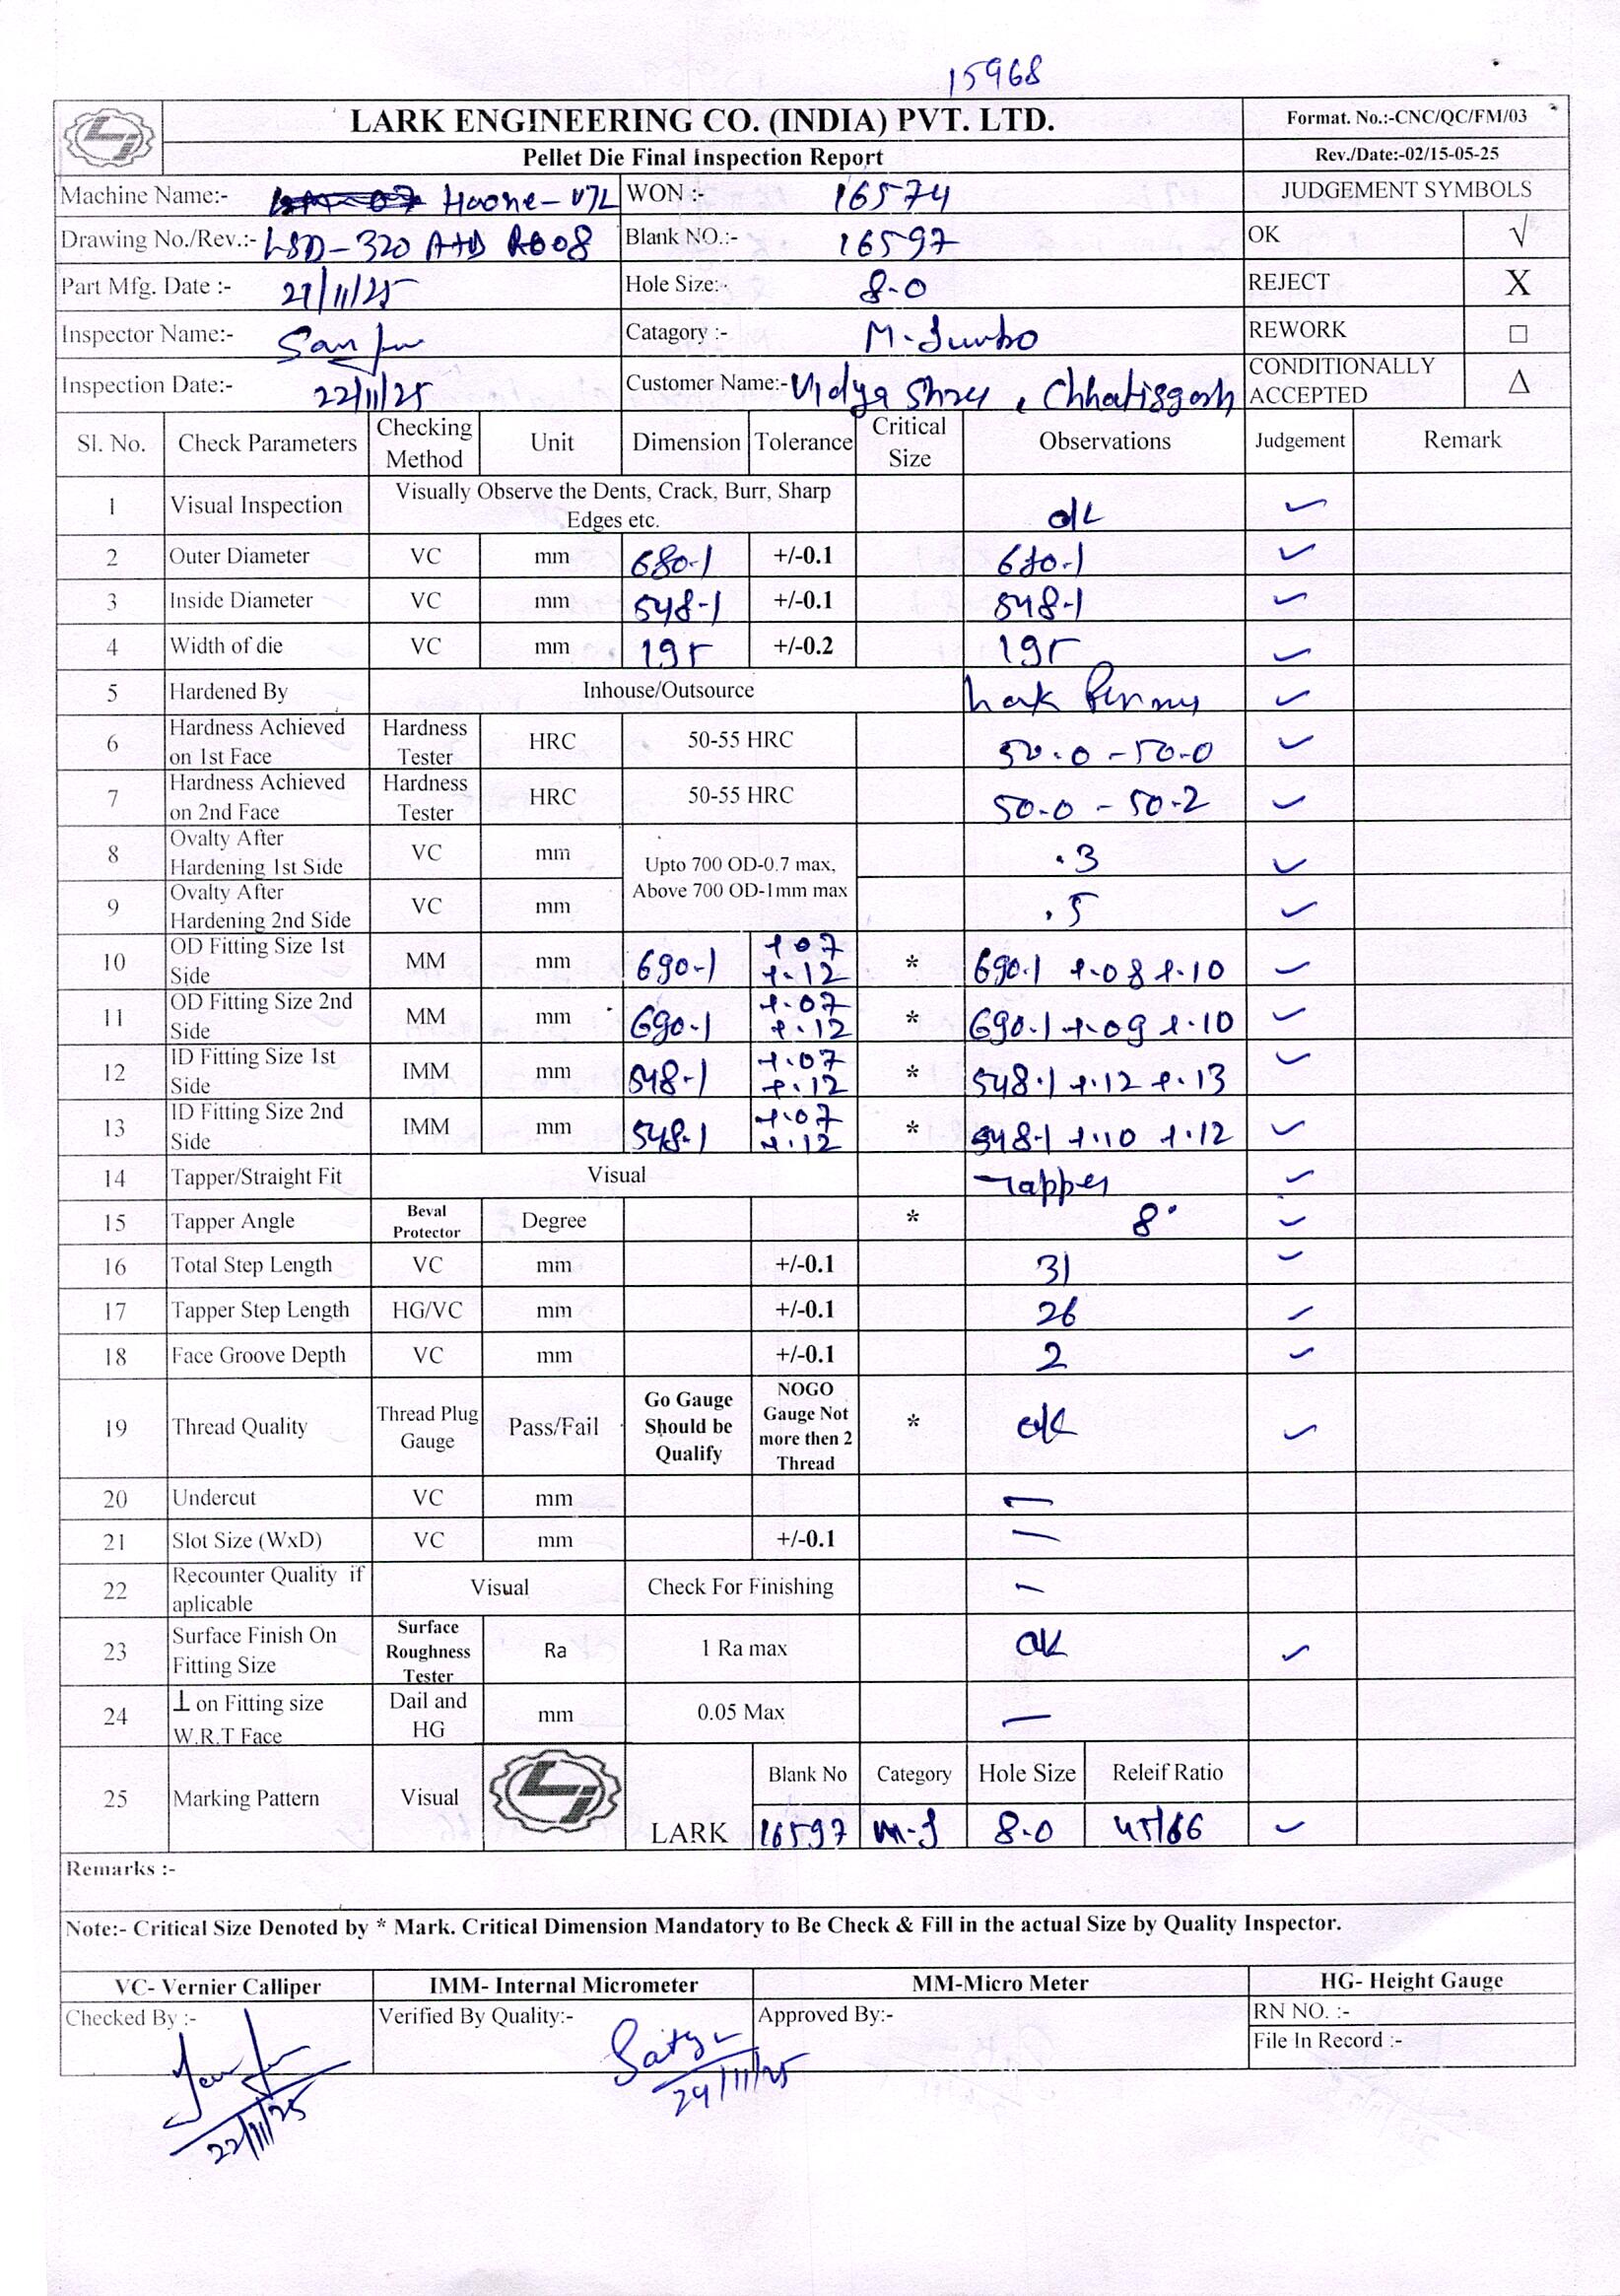 15968
LARK ENGINEERING CO. (INDIA) PVT. LTD. Format. No.:-CNC/QC/FM/03
Pellet Die Final Inspection Report Rev./Date:-02/15-05-25
Machine Name:- WON :- 16574 JUDGEMENT SYMBOLS
Drawing No./Rev.:- LSD-320 Blank NO.:- 16597 OK √
Part Mfg. Date :- 21/11/25 Hole Size:- 8.0 REJECT X
Inspector Name:- Catagory :- M-Jumbo REWORK □
Inspection Date:- 22/11/25 Customer Name:- Vidya Shree, Chhatisgarh CONDITIONALLY ACCEPTED Δ
Sl. No. Check Parameters Checking Method Unit Dimension Tolerance Critical Size Observations Judgement Remark
1 Visual Inspection Visually Observe the Dents, Crack, Burr, Sharp Edges etc. ok ✓
2 Outer Diameter VC mm 680.1 +/-0.1 680.1 ✓
3 Inside Diameter VC mm 548.1 +/-0.1 548.1 ✓
4 Width of die VC mm 195 +/-0.2 195 ✓
5 Hardened By Inhouse/Outsource ✓
6 Hardness Achieved on 1st Face Hardness Tester HRC 50-55 HRC 50.0 - 50.0 ✓
7 Hardness Achieved on 2nd Face Hardness Tester HRC 50-55 HRC 50.0 - 50.2 ✓
8 Ovalty After Hardening 1st Side VC mm Upto 700 OD-0.7 max, Above 700 OD-1mm max .3 ✓
9 Ovalty After Hardening 2nd Side VC mm .5 ✓
10 OD Fitting Size 1st Side MM mm 690.1 +.07 +.12 * 690.1 +.08 +.10 ✓
11 OD Fitting Size 2nd Side MM mm 690.1 +.07 +.12 * 690.1 +.09 +.10 ✓
12 ID Fitting Size 1st Side IMM mm 548.1 +.07 +.12 * 548.1 +.12 +.13 ✓
13 ID Fitting Size 2nd Side IMM mm 548.1 +.07 +.12 * 548.1 +.10 +.12 ✓
14 Tapper/Straight Fit Visual Tapper ✓
15 Tapper Angle Beval Protector Degree * 8° ✓
16 Total Step Length VC mm +/-0.1 31 ✓
17 Tapper Step Length HG/VC mm +/-0.1 26 ✓
18 Face Groove Depth VC mm +/-0.1 2 ✓
19 Thread Quality Thread Plug Gauge Pass/Fail Go Gauge Should be Qualify NOGO Gauge Not more then 2 Thread * ok ✓
20 Undercut VC mm —
21 Slot Size (WxD) VC mm +/-0.1 —
22 Recounter Quality if aplicable Visual Check For Finishing —
23 Surface Finish On Fitting Size Surface Roughness Tester Ra 1 Ra max ok ✓
24 ⊥ on Fitting size W.R.T Face Dail and HG mm 0.05 Max —
25 Marking Pattern Visual LARK Blank No Category Hole Size Releif Ratio
16597 M-J 8.0 45/66 ✓
Remarks :-
Note:- Critical Size Denoted by * Mark. Critical Dimension Mandatory to Be Check & Fill in the actual Size by Quality Inspector.
VC- Vernier Calliper IMM- Internal Micrometer MM-Micro Meter HG- Height Gauge
Checked By :- Verified By Quality:- Approved By:- RN NO. :-
File In Record :-
22/11/25 24/11/25